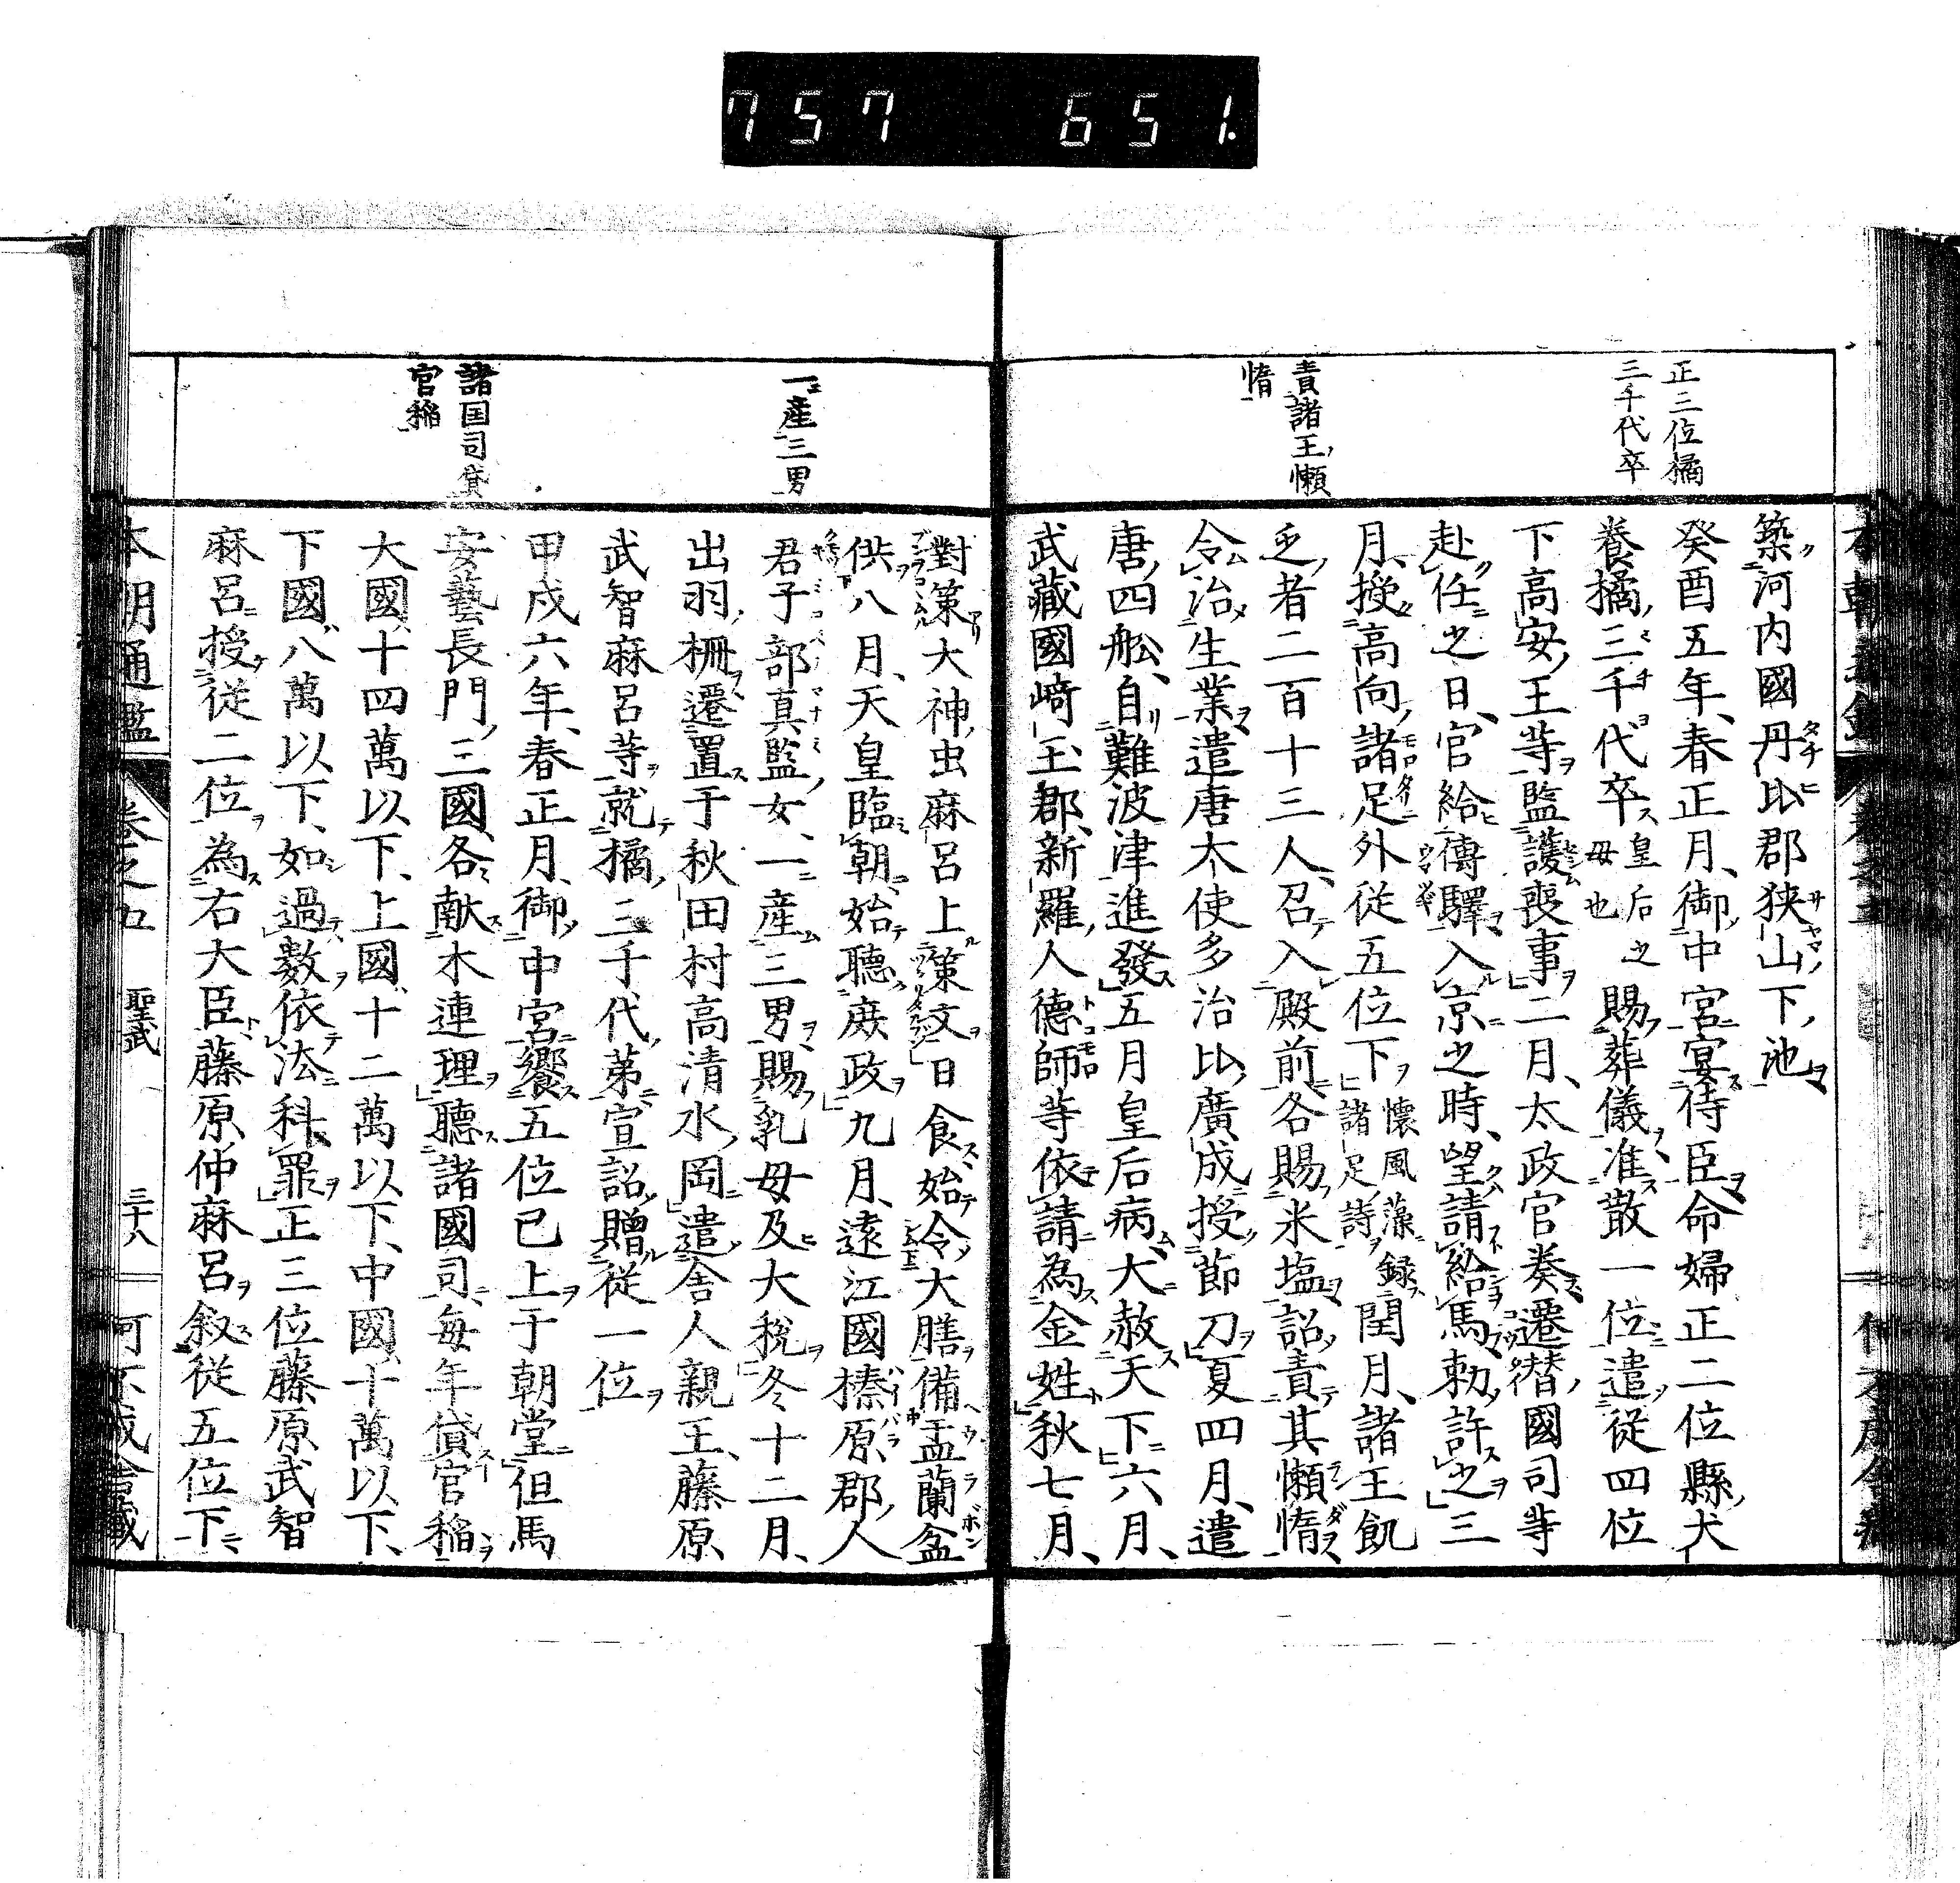 757 651.
正三位橘
三千代卒
責諸王懶
惰
築河内國丹比郡狹山下池
癸酉五年春正月御中宮宴侍臣命婦正二位縣犬
養橘三千代卒皇后之母也賜葬儀准散一位遣從四位
下高安王等監護喪事二月太政官奏遷替國司等
赴任之日官給傳驛入京之時望請給馬勅許之三
月授高向諸足外從五位下懷風藻録諸足詩閏月諸王飢
乏者二百十三人召入殿前各賜米塩詔責其懶惰
令治生業遣唐大使多治比廣成授節刀夏四月遣
唐四舩自難波津進發五月皇后病大赦天下六月
武藏國﨑玉郡新羅人德師等依請為金姓秋七月
一產三男
諸国司貸
官稲
對策大神虫麻呂上策文日食始令大膳備盂蘭盆
供八月天皇臨朝始聽庶政九月遠江國榛原郡人
君子部真監女一產三男賜乳母及大稅冬十二月
出羽柵遷置于秋田村高清水岡遣舍人親王藤原
武智麻呂等就橘三千代第宣詔贈從一位
甲戌六年春正月御中宮饗五位已上于朝堂但馬
安藝長門三國各献木連理聽諸國司每年貸官稲
大國十四萬以下上國十二萬以下中國十萬以下
下國八萬以下如過數依法科罪正三位藤原武智
麻呂授從二位為右大臣藤原仲麻呂叙從五位下
本朝通鑑 卷之五 聖武 三十八